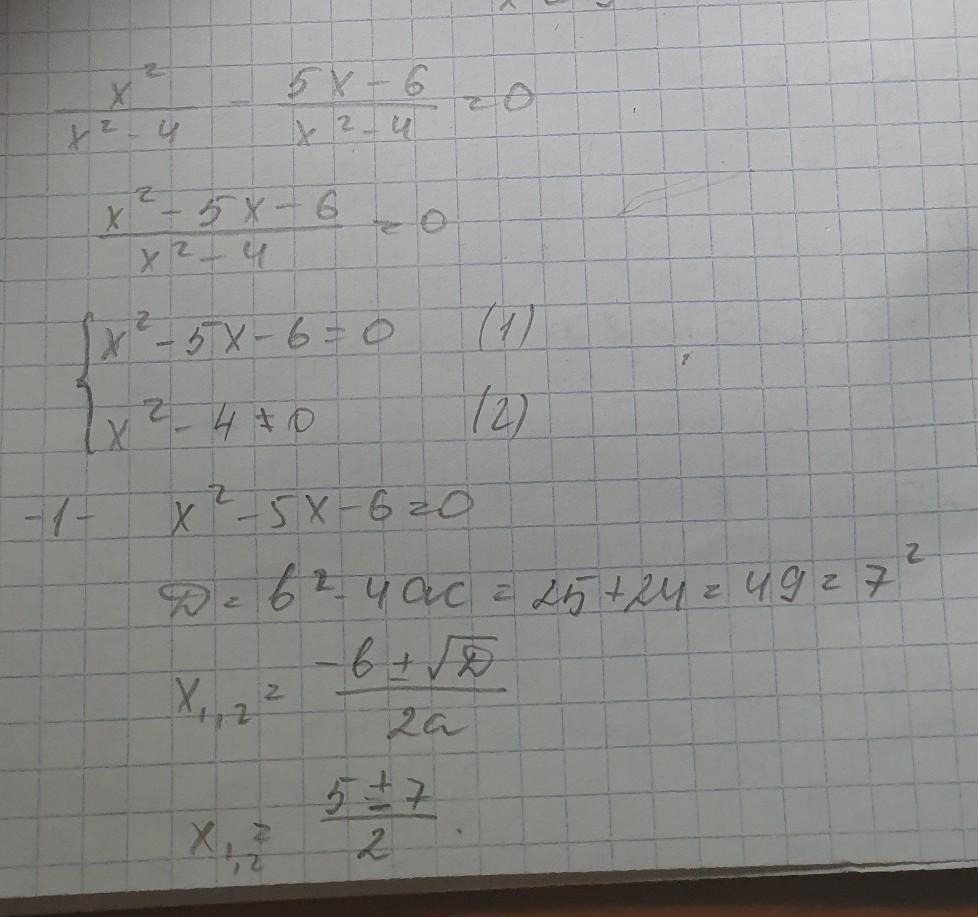 x²/(x² - 4) - (5x - 6)/(x² - 4) = 0
(x² - 5x - 6)/(x² - 4) = 0
{ x² - 5x - 6 = 0 (1)
x² - 4 ≠ 0 (2)
-1- x² - 5x - 6 = 0
D = b² - 4ac = 25 + 24 = 49 = 7²
x₁,₂ = (-b ± √D)/(2a)
x₁,₂ = (5 ± 7)/2 .